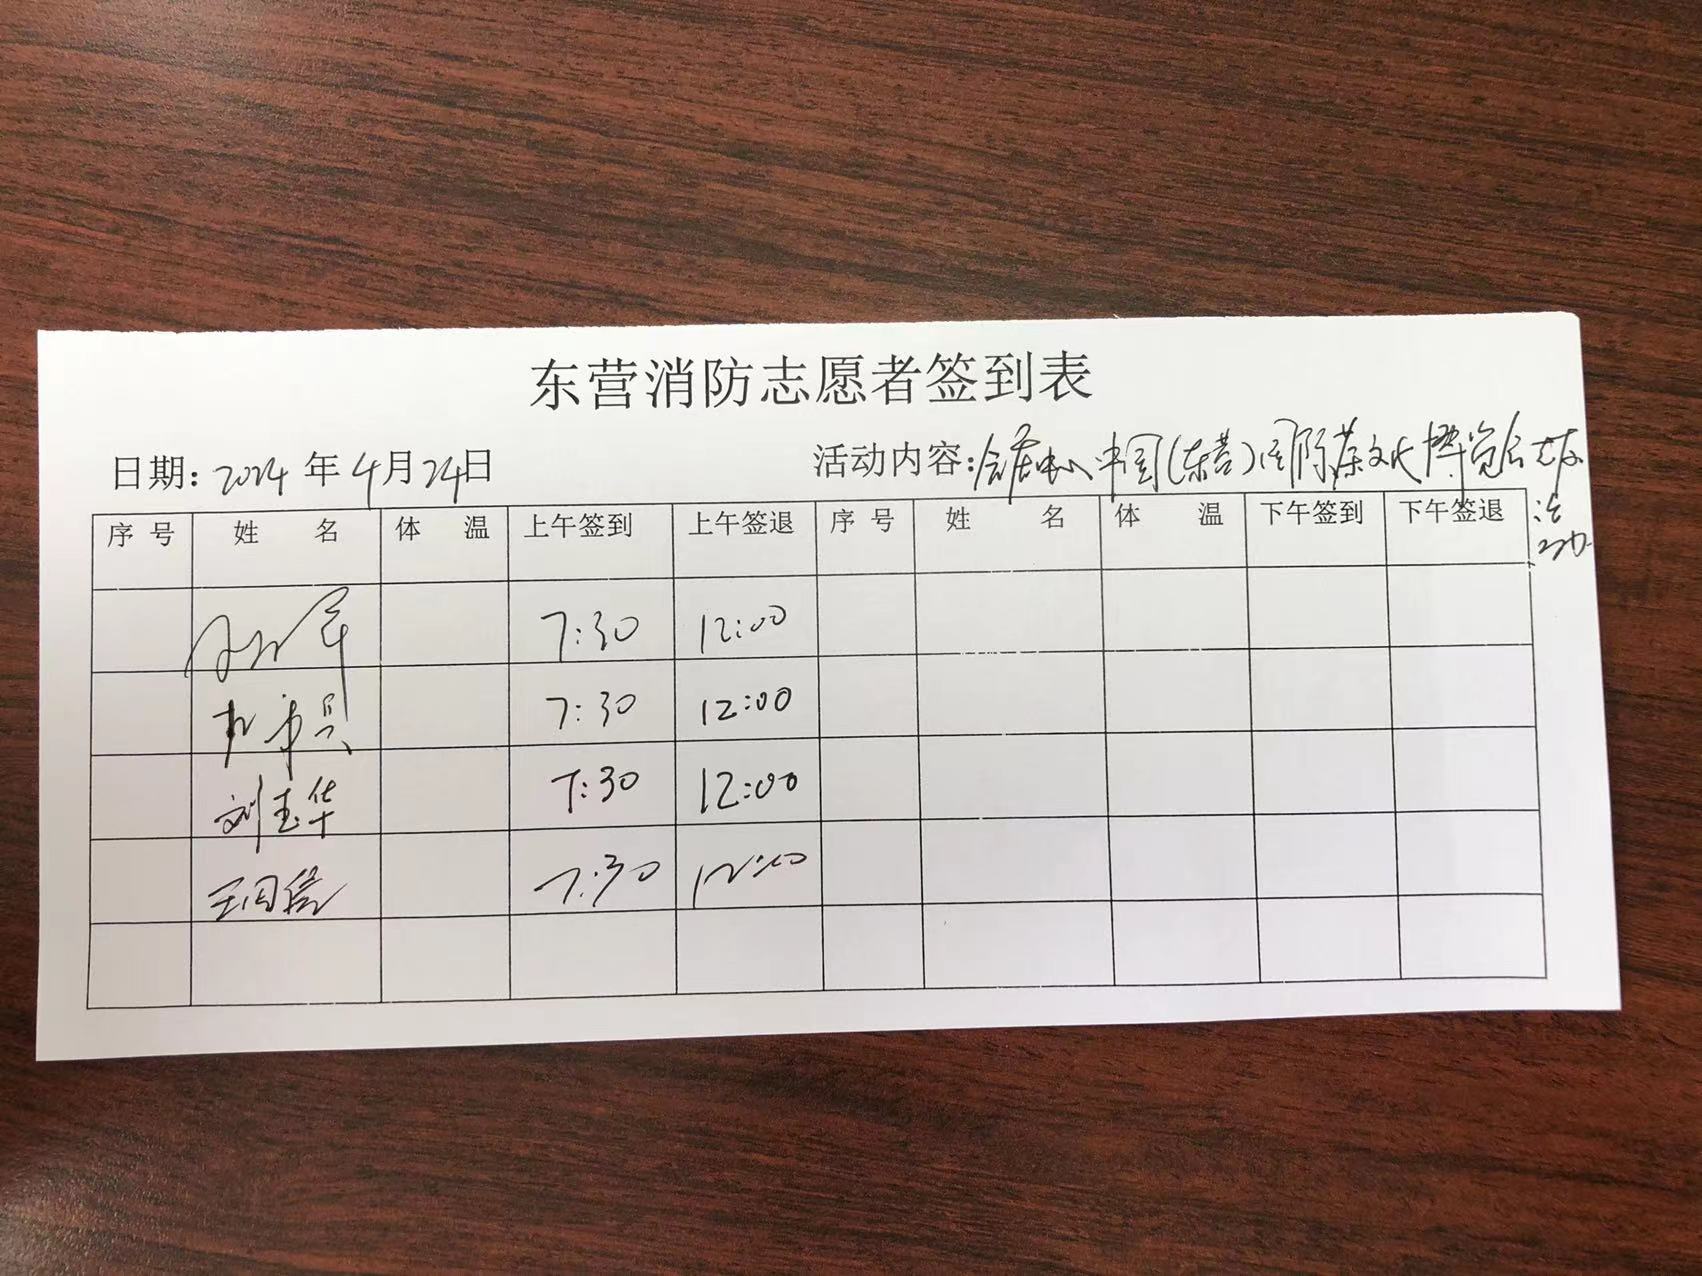 东营消防志愿者签到表
日期: 2024 年 4 月 24 日 活动内容: 会展中心 中国(东营)国际茶文化博览会
活动
序 号 姓 名 体 温 上午签到 上午签退 序 号 姓 名 体 温 下午签到 下午签退
7:30 12:00
7:30 12:00
刘玉华 7:30 12:00
7:30 12:00